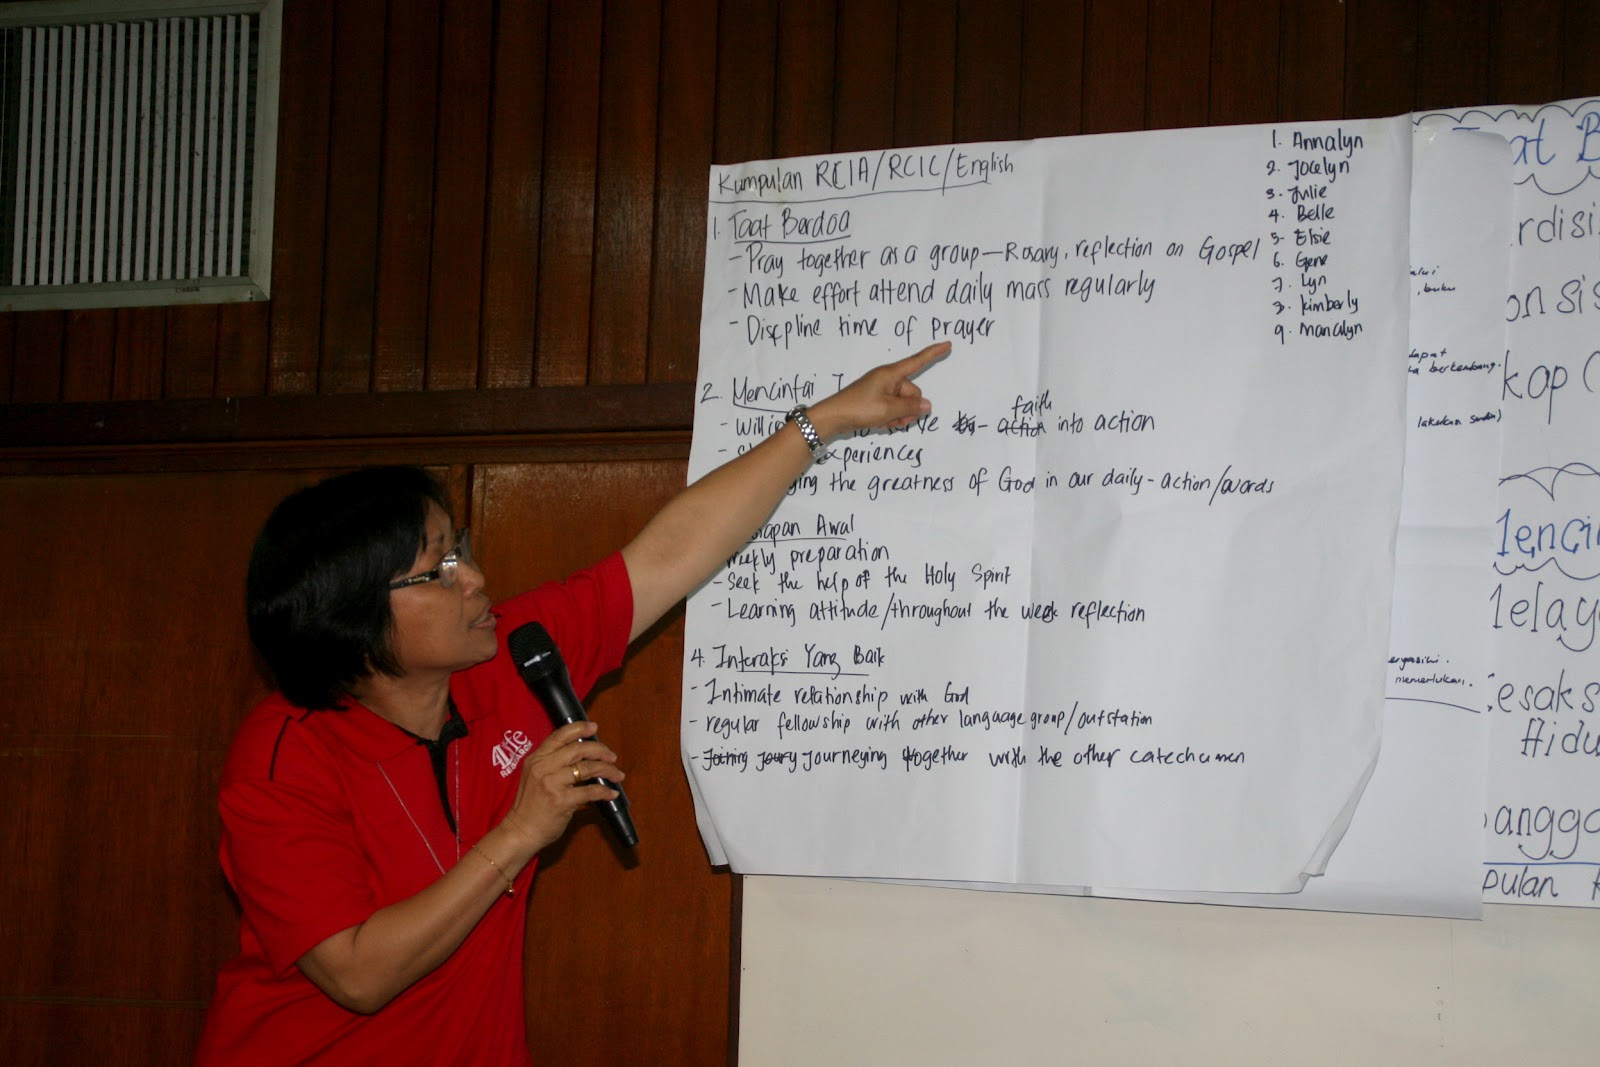 Kumpulan RCIA/RCIC/English
1. Taat Berdoa
- Pray together as a group - Rosary, reflection on Gospel
- Make effort attend daily mass regularly
- Discpline time of prayer
2. Mencintai
- faith into action
experiences
the greatness of God in our daily - action/words
Awal
weekly preparation
- Seek the help of the Holy Spirit
- Learning attitude/throughout the week reflection
4. Interaksi Yang Baik
- Intimate relationship with God
- regular fellowship with other language group/outstation
- Joining Joury Journeying together with the other catechumen
1. Annalyn
2. Jocelyn
3. Julie
4. Belle
5. Elsie
6. Gene
7. Lyn
8. Kimberly
9. Manalyn
buku
berkembang.
lakukan
memerlukan.
4Life
RESEARCH